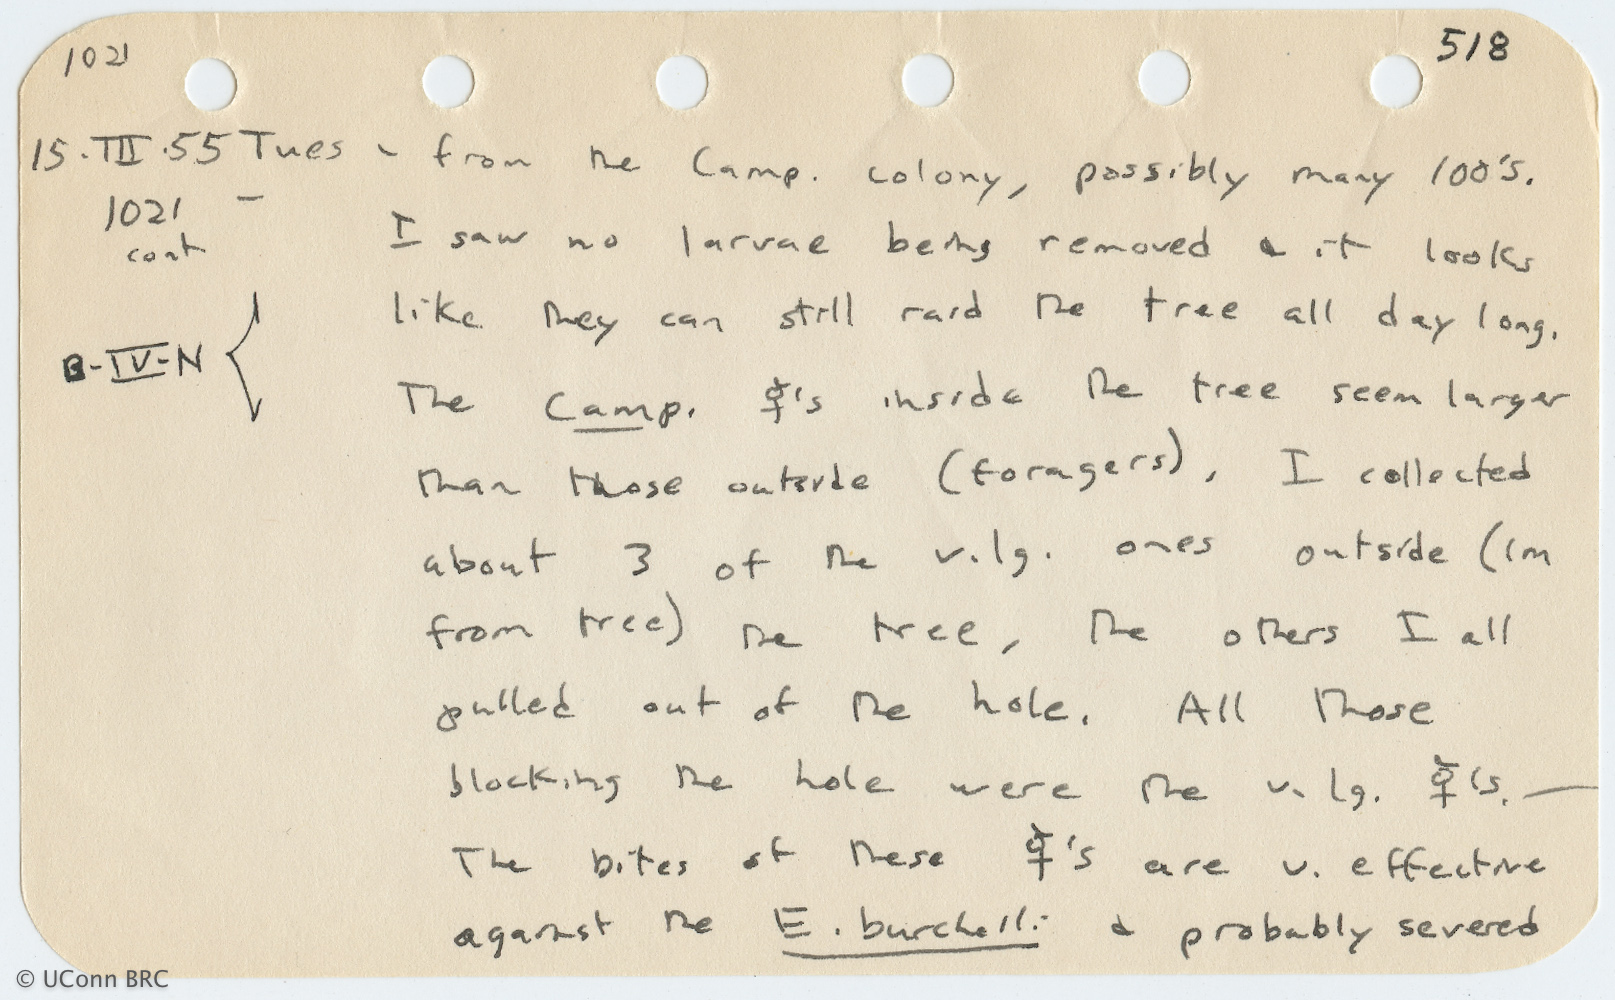 1021
518
15.III.55 Tues - from the Camp. colony, possibly many 100's.
1021 -
cont
I saw no larvae being removed & it looks
like they can still raid the tree all day long.
B-IV-N
The Camp. ☿'s inside the tree seem larger
than those outside (foragers), I collected
about 3 of the v.lg. ones outside (1m
from tree) the tree, the others I all
pulled out of the hole. All those
blocking the hole were the v. lg. ☿'s. —
The bites of these ☿'s are v. effective
against the E. burchelli & probably severed
© UConn BRC